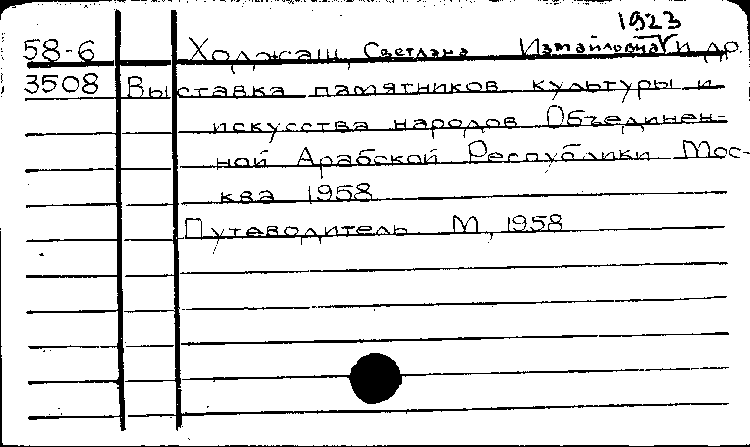 1923
58-6 Ходжаш, Светлана Измайловна и др.
3508 Выставка памятников культуры и
искусства народов Объединен-
ной Арабской Республики Мос-
ква 1958
Путеводитель М, 1958